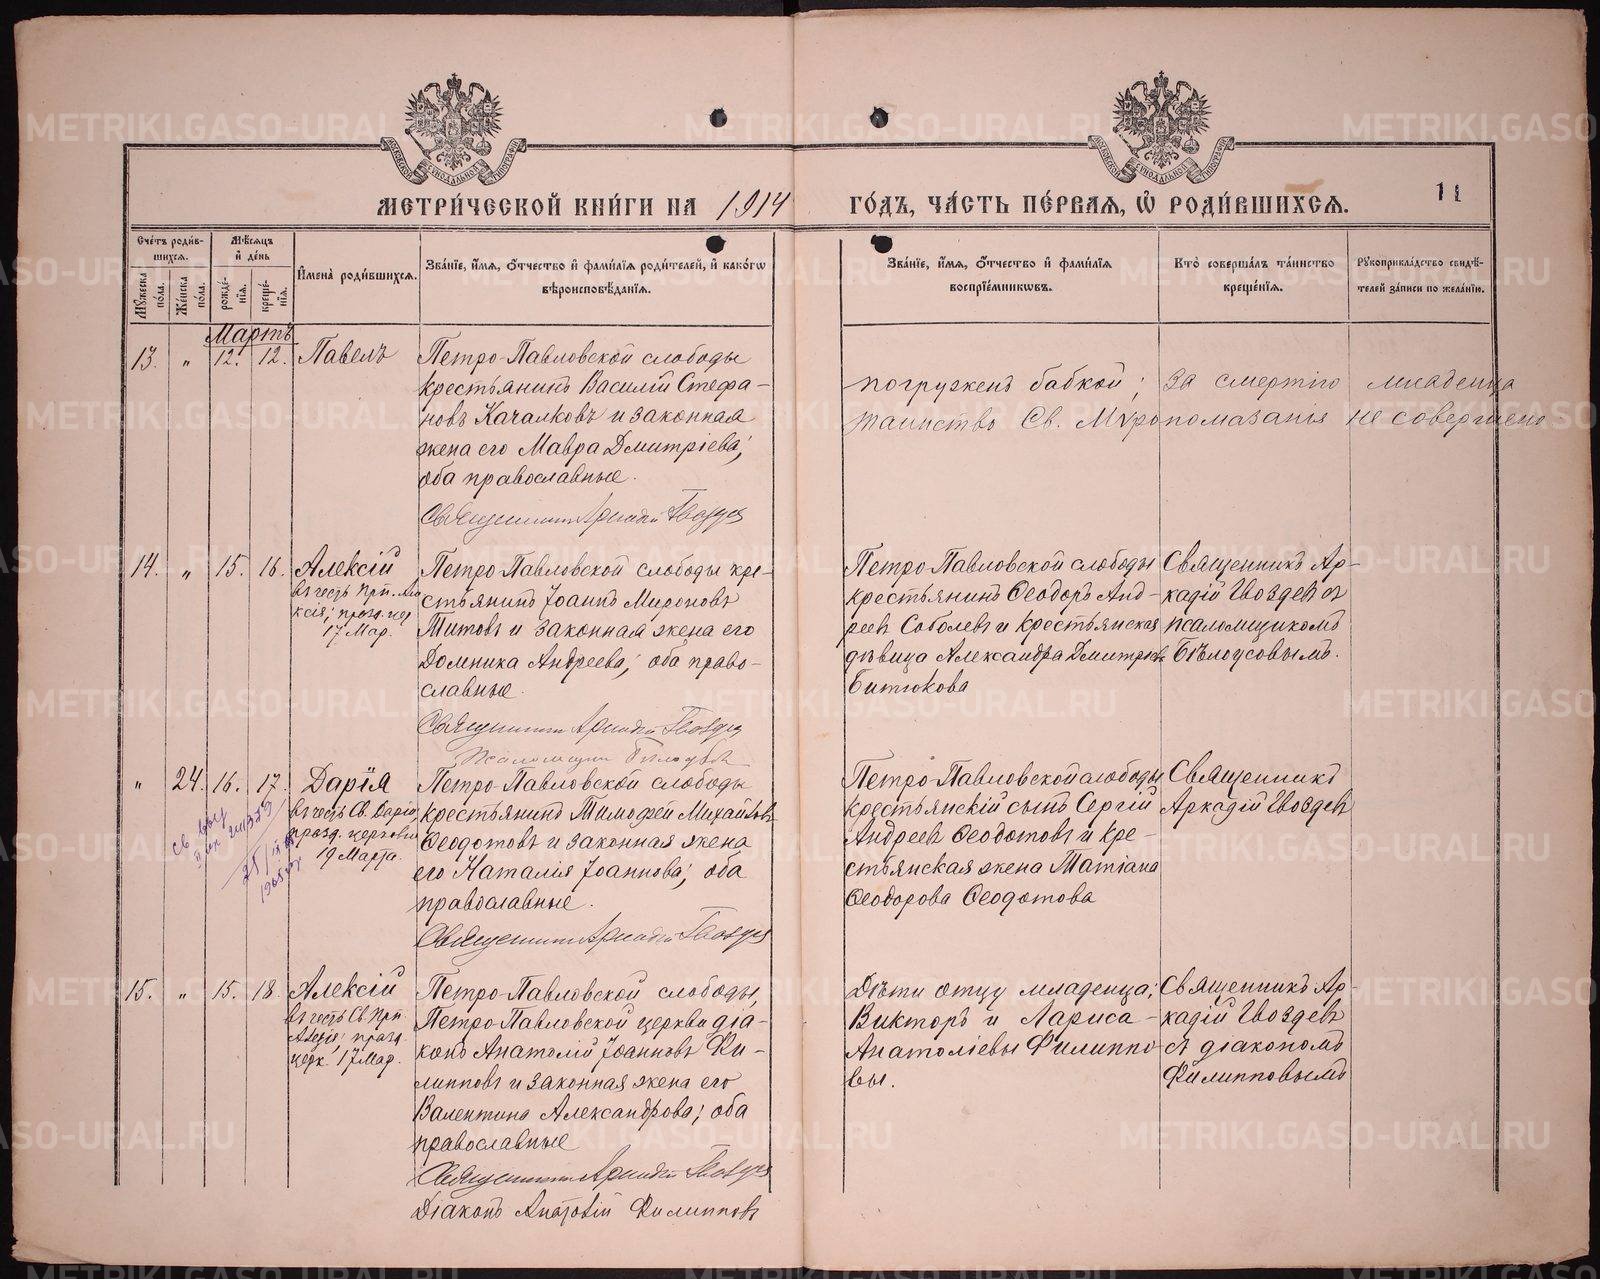 МЕТРИ́ЧЕСКОЙ КНИ́ГИ НА 1914 ГО́ДЪ, ЧА́СТЬ ПЕ́РВАЯ, Ѡ҆ РОДИ́ВШИХСЯ.
11
Сче́тъ роди́в-
шихся.
Мѣ́сяцъ
и҆ де́нь
Му́жеска по́ла.
Же́нска по́ла.
рожде́-
нїя.
креще́-
нїя.
И҆мена̀ роди́вшихся.
Зва́нїе, и҆́мя, ѻ҆́тчество и҆ фами́лїя роди́телей, и҆ како́гѡ
вѣроисповѣ́данїя.
Зва́нїе, и҆́мя, ѻ҆́тчество и҆ фами́лїя
воспрїе́мниковъ.
Кто̀ соверша́лъ та́инство
креще́нїя.
Рукоприкла́дство свидѣ́-
телей за́писи по жела́нїю.
Мартъ
13. " 12. 12. Павелъ
Петро-Павловской слободы
крестьянинъ Василій Стефа-
новъ Качалковъ и законная
жена его Мавра Дмитріева;
оба православные.
Священникъ Аркадій Гвоздевъ
погруженъ бабкой; за смертію младенца
таинство Св. Мѵропомазанія не совершено
14. " 15. 16. Алексій
въ честь Прп. Але
ксія; празд. чер
17 Мар.
Петро-Павловской слободы кре-
стьянинъ Іоаннъ Мироновъ
Титовъ и законная жена его
Домника Андреева; оба право-
славные.
Священникъ Аркадій Гвоздевъ
Псаломщикъ Бѣлоусовъ
Петро-Павловской слободы
крестьянинъ Ѳеодоръ Анд-
реевъ Соболевъ и крестьянская
дѣвица Александра Дмитріева
Битюкова
Священникъ Ар-
кадій Гвоздевъ съ
псаломщикомъ
Бѣлоусовымъ.
" 24. 16. 17. Дарія
въ честь Св. Даріи
празд. церковью
19 Марта.
Петро-Павловской слободы
крестьянинъ Тимофей Михайловъ
Ѳеодотовъ и законная жена
его Наталія Іоаннова; оба
православные.
Священникъ Аркадій Гвоздевъ
Петро-Павловской слободы
крестьянскій сынъ Сергій
Андреевъ Ѳеодотовъ и кре-
стьянская жена Татіана
Ѳеодорова Ѳеодотова
Священникъ
Аркадій Гвоздевъ
15. " 15. 18. Алексій
въ честь Св. Прп
Алексія; празд.
церк. 17 Мар.
Петро-Павловской слободы,
Петро-Павловской церкви діа-
конъ Анатолій Іоанновъ Фи-
липповъ и законная жена его
Валентина Александрова; оба
православные
Священникъ Аркадій Гвоздевъ
Діаконъ Анатолій Филипповъ
Дѣти отцу младенца;
Викторъ и Лариса
Анатоліевы Филиппо-
вы.
Священникъ Ар-
кадій Гвоздевъ
съ діакономъ
Филипповымъ